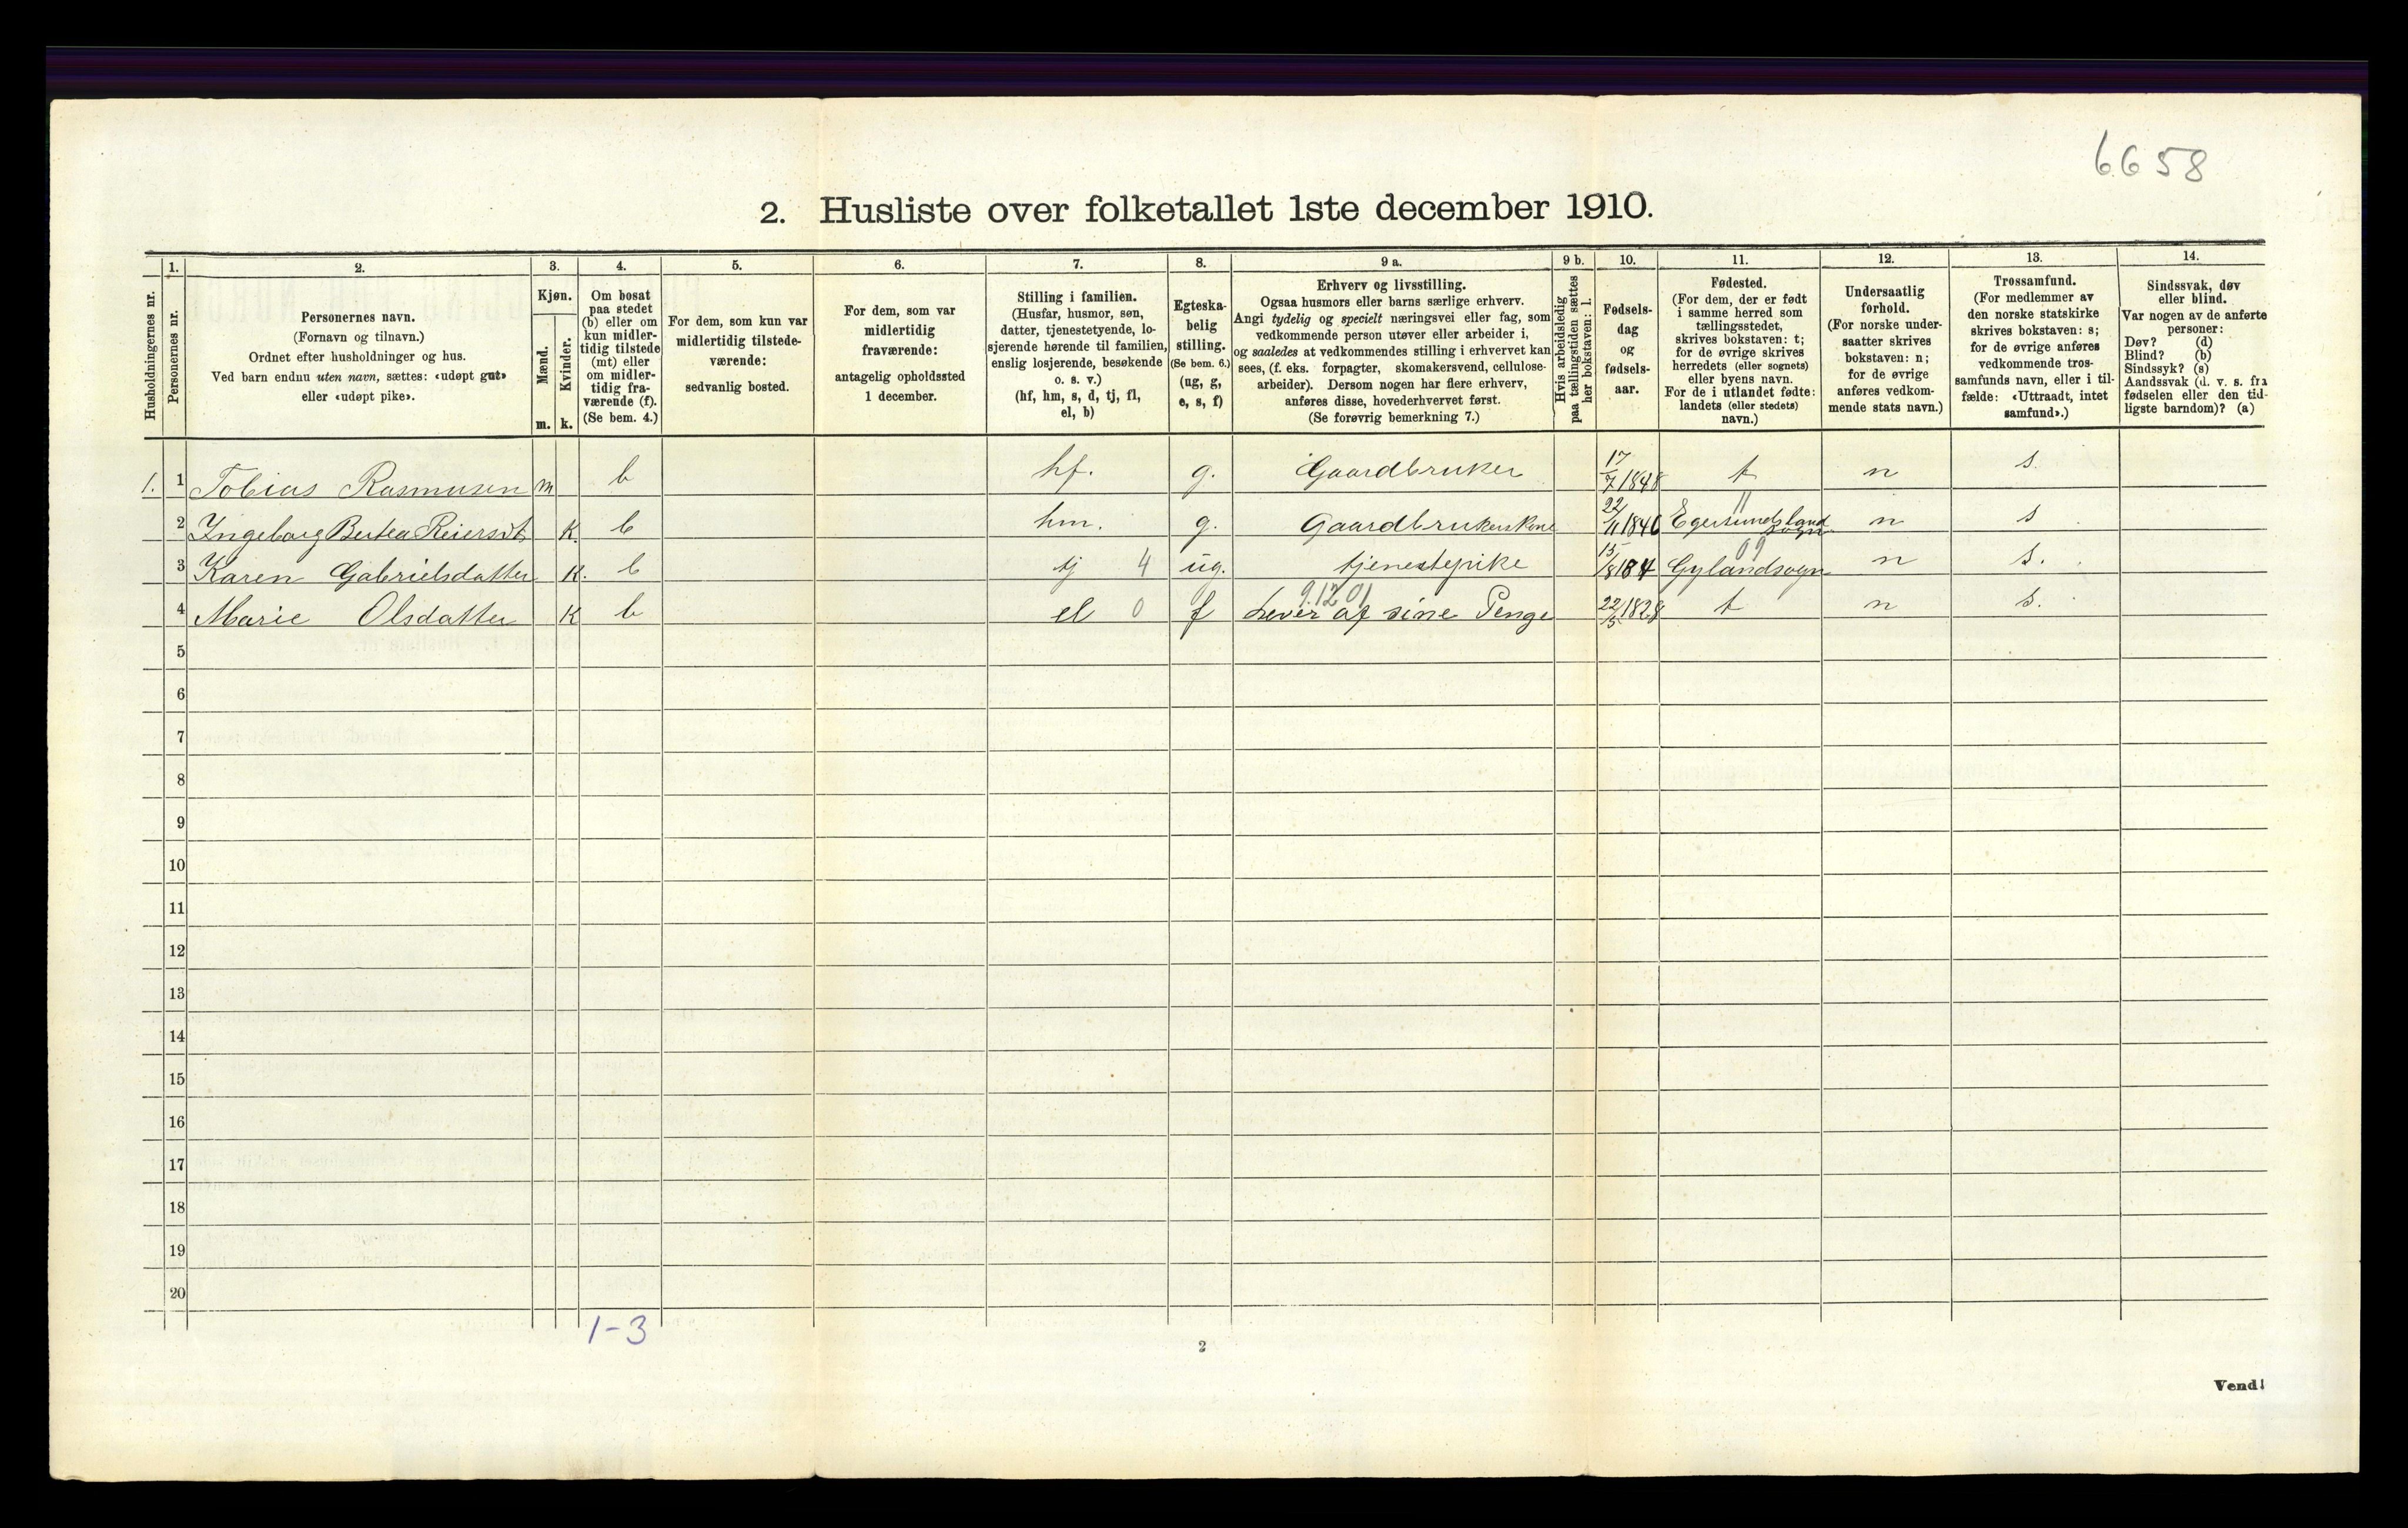 6658
2. Husliste over folketallet 1ste december 1910.
Husholdningernes nr.
1.
Personernes nr.
2.
Personernes navn.
(Fornavn og tilnavn.)
Ordnet efter husholdninger og hus.
Ved barn endnu uten navn, sættes: «udøpt gut»
eller «udøpt pike».
3.
Kjøn.
Mænd.
Kvinder.
m. k.
4.
Om bosat
paa stedet
(b) eller om
kun midler-
tidig tilstede
(mt) eller
om midler-
tidig fra-
værende (f).
(Se bem. 4.)
5.
For dem, som kun var
midlertidig tilstede-
værende:
sedvanlig bosted.
6.
For dem, som var
midlertidig
fraværende:
antagelig opholdssted
1 december.
7.
Stilling i familien.
(Husfar, husmor, søn,
datter, tjenestetyende, lo-
sjerende hørende til familien,
enslig losjerende, besøkende
o. s. v.)
(hf, hm, s, d, tj, fl,
el, b)
8.
Egteska-
belig
stilling.
(Se bem. 6.)
(ug, g,
e, s, f)
9 a.
Erhverv og livsstilling.
Ogsaa husmors eller barns særlige erhverv.
Angi tydelig og specielt næringsvei eller fag, som
vedkommende person utøver eller arbeider i,
og saaledes at vedkommendes stilling i erhvervet kan
sees, (f. eks. forpagter, skomakersvend, cellulose-
arbeider). Dersom nogen har flere erhverv,
anføres disse, hovederhvervet først.
(Se forøvrig bemerkning 7.)
9 b.
Hvis arbeidsledig
paa tællingstiden sættes
her bokstaven: l.
10.
Fødsels-
dag
og
fødsels-
aar.
11.
Fødested.
(For dem, der er født
i samme herred som
tællingsstedet,
skrives bokstaven: t;
for de øvrige skrives
herredets (eller sognets)
eller byens navn.
For de i utlandet fødte:
landets (eller stedets)
navn.)
12.
Undersaatlig
forhold.
(For norske under-
saatter skrives
bokstaven: n;
for de øvrige
anføres vedkom-
mende stats navn.)
13.
Trossamfund.
(For medlemmer av
den norske statskirke
skrives bokstaven: s;
for de øvrige anføres
vedkommende tros-
samfunds navn, eller i til-
fælde: «Uttraadt, intet
samfund».)
14.
Sindssvak, døv
eller blind.
Var nogen av de anførte
personer:
Døv? (d)
Blind? (b)
Sindssyk? (s)
Aandssvak (d. v. s. fra
fødselen eller den tid-
ligste barndom)? (a)
1. 1 Tobias Rasmusen m b hf. g. Gaardbruker 17/7 1848 t n s.
11
2 Ingeborg Bertea Reiersdt. K. b hm. g. Gaardbrukerskone 22/11 1840 Egersundsland sogn n s
09
3 Karen Gabrielsdatter K. b tj 4 ug. tjenestepike 15/8 184 Gylandsogn n s.
9.12 01
4 Marie Olsdatter K b el 0 f Lever af sine Penge 22/5 1828 t n s.
5
6
7
8
9
10
11
12
13
14
15
16
17
18
19
20
1-3
2
Vend!